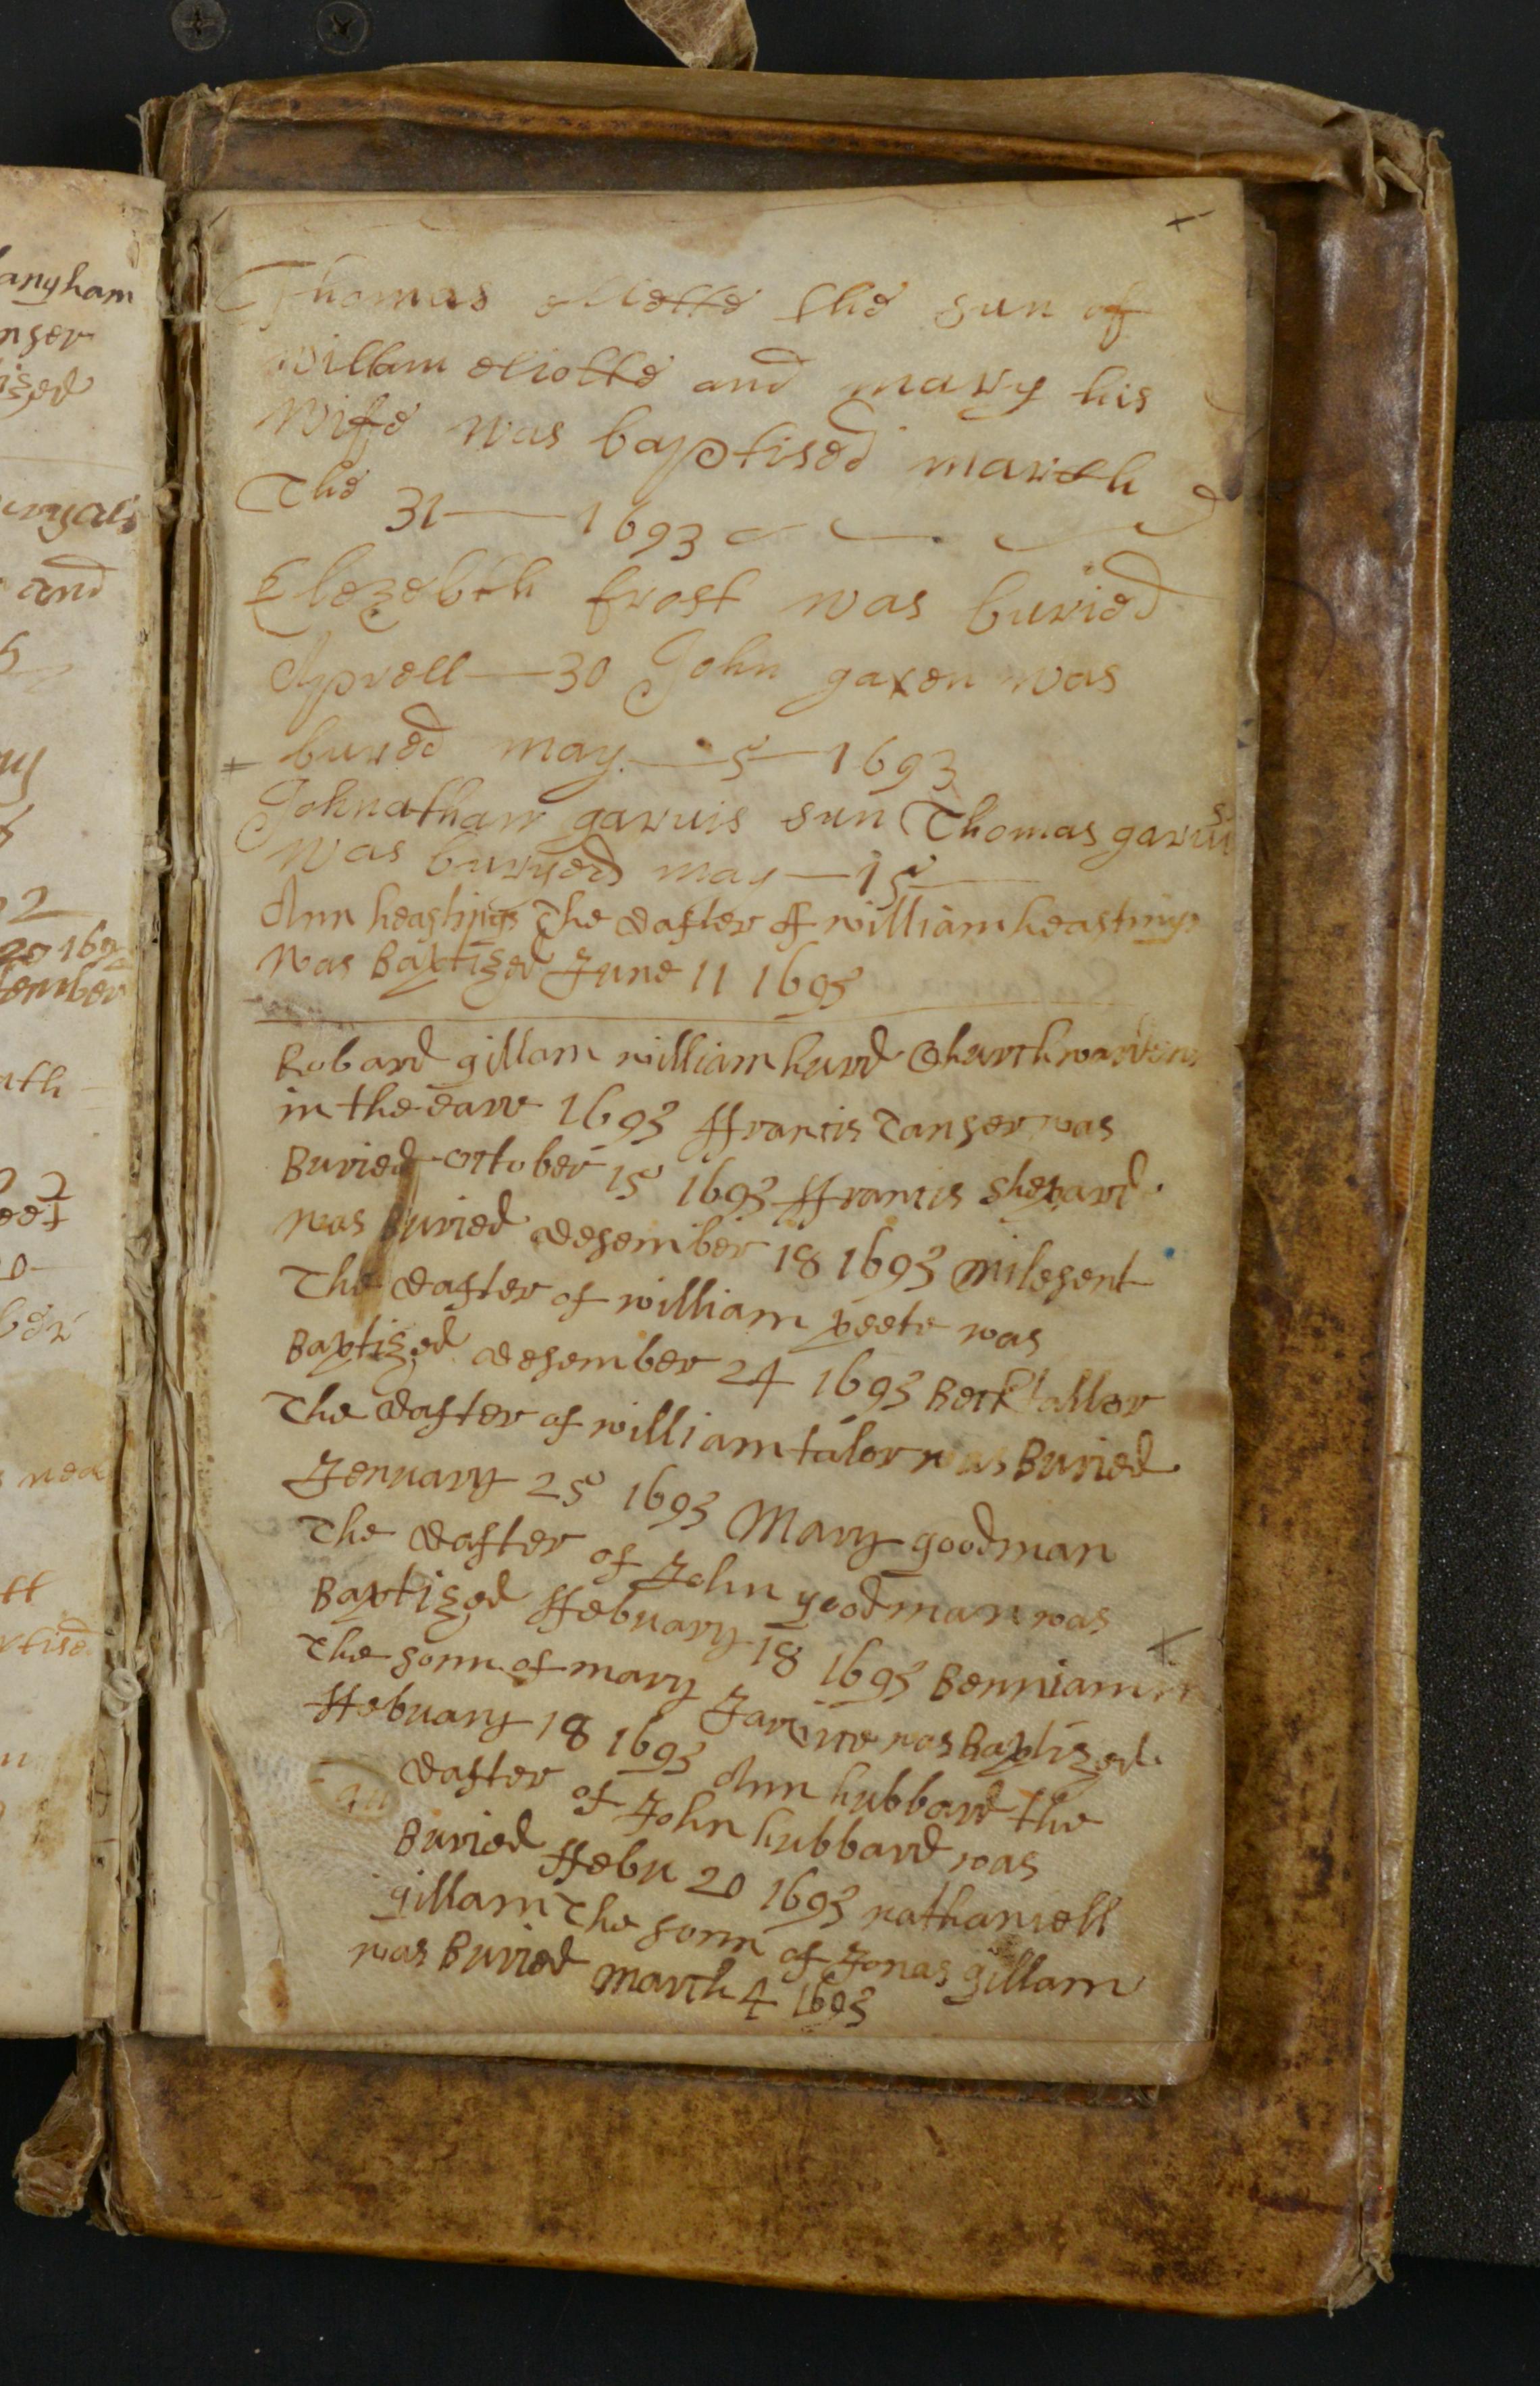 Thomas eliotte the sun of
Willam eliotte and mary his
Wife was baptised march
The 31 — 1693
Elezebth frost was buried
Aprell — 30 John gaxen was
bured may — 5 — 1693
Johnathan garuis sun Thomas garuis
Was buryed may — 15 —
Ann heastings The dafter of william heastings
was Baptized June 11 1693
Robard gillam william hurd Churchwardens
in the earr 1693 ffrancis Tanser was
Buried october 15 1693 ffrancis shepard
was Buried desember 18 1693 milesent
The dafter of william peete was
Baptized desember 24 1693 Beck tallor
The dafter of william talor was Buried
Jenuary 25 1693 Mary goodman
The dafter of John goodman was
Baptized ffebuary 18 1693 Benniamin
The sonn of mary was Baptized
ffebuary 18 1693 Ann hubbard the
dafter of John hubbard was
Buried ffebu 20 1693 nathaniell
gillam The sonn of Jonas gillam
was Buried march 4 1693
angham
nser
ised
and
2
20 169
tember
ath
tised